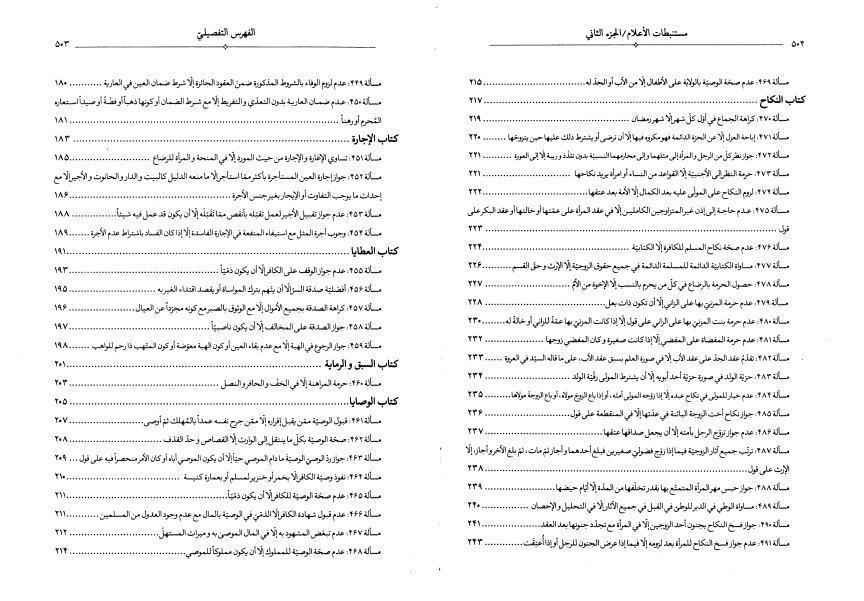 الفهرس التفصيليّ
٥٠٣
مسألة ٤٤٩: عدم لزوم الوفاء بالشروط المذكورة ضمن العقود الجائزة إلّا شرط ضمان العين في العارية ........... ١٨٠
مسألة ٤٥٠: عدم ضمان العارية بدون التعدي والتفريط إلّا مع شرط الضمان أو كونها ذهباً أو فضّة أو صيداً استعاره
المُحرم أو رهناً ........... ١٨١
كتاب الإجارة ........... ١٨٣
مسألة ٤٥١: تساوي الإعارة والإجارة من حيث المورد إلّا في المنحة والمرأة للرضاع ........... ١٨٥
مسألة ٤٥٢: جواز إجارة العين المستأجرة بأكثر ممّا استأجر إلّا ما منعه الدليل كالبيت والدار والحانوت والأجير إلّا مع
إحداث ما يوجب التفاوت أو الإيجار بغير جنس الأجرة ........... ١٨٦
مسألة ٤٥٣: عدم جواز تقبيل الأجير لعمل تقبّله بأنقص ممّا تَقَبَّله إلّا أن يكون قد عمل فيه شيئاً ........... ١٨٨
مسألة ٤٥٤: وجوب أجرة المثل مع استيفاء المنفعة في الإجارة الفاسدة إلّا إذا كان الفساد باشتراط عدم الأجرة ........... ١٨٩
كتاب العطايا ........... ١٩١
مسألة ٤٥٥: عدم جواز الوقف على الكافر إلّا أن يكون ذمّيّاً ........... ١٩٣
مسألة ٤٥٦: أفضليّة صدقة السرّ إلّا أن يتّهم بترك المواساة أو يقصد اقتداء الغير به ........... ١٩٥
مسألة ٤٥٧: كراهة الصدقة بجميع الأموال إلّا مع الوثوق بالصبر مع كونه مجرّداً عن العيال ........... ١٩٦
مسألة ٤٥٨: جواز الصدقة على المخالف إلّا أن يكون ناصبيّاً ........... ١٩٧
مسألة ٤٥٩: جواز الرجوع في الهبة إلّا مع عدم بقاء العين أو كون الهبة معوّضة أو كون المتّهب ذا رحم للواهب ........... ١٩٨
كتاب السبق و الرماية ........... ٢٠١
مسألة ٤٦٠: حرمة المراهنة إلّا في الخفّ والحافر و النصل ........... ٢٠٣
كتاب الوصايا ........... ٢٠٥
مسألة ٤٦١: قبول الوصيّة ممّن يقبل إقراره إلّا ممّن جرح نفسه عمداً بالمُهلك ثمّ أوصى ........... ٢٠٧
مسألة ٤٦٢: صحّة الوصيّة بكلّ ما ينتقل إلى الوارث إلّا القصاص و حدّ القذف ........... ٢٠٨
مسألة ٤٦٣: جواز ردّ الوصيّ الوصيّة ما دام الموصي حيّاً إلّا أن يكون الموصي أباه أو كان الأمر منحصراً فيه على قول ... ٢٠٩
مسألة ٤٦٤: نفوذ وصيّة الكافر إلّا بخمر أو خنزير لمسلم أو بعمارة كنيسة ........... ٢١٠
مسألة ٤٦٥: عدم صحّة الوصيّة للكافر إلّا أن يكون ذمّيّاً ........... ٢١١
مسألة ٤٦٦: عدم قبول شهادة الكافر إلّا الذمّيّ في الوصيّة بالمال مع عدم وجود العدول من المسلمين ........... ٢١١
مسألة ٤٦٧: عدم تبعّض المشهود به إلّا في المال الموصى به و ميراث المستهلّ ........... ٢١٢
مسألة ٤٦٨: عدم صحّة الوصيّة للمملوك إلّا أن يكون مملوكاً للموصي ........... ٢١٤
مستنبطات الأعلام/الجزء الثاني
٥٠٤
مسألة ٤٦٩: عدم صحّة الوصيّة بالولاية على الأطفال إلّا من الأب أو الجدّ له ........... ٢١٥
كتاب النكاح ........... ٢١٧
مسألة ٤٧٠: كراهة الجماع في أوّل كلّ شهر إلّا شهر رمضان ........... ٢١٩
مسألة ٤٧١: إباحة العزل إلّا عن الحرّة الدائمة فهو مكروه فيها إلّا أن ترضى أو يشترط ذلك عليها حين يتزوّجها .. ٢٢٠
مسألة ٤٧٢: جواز نظر كلّ من الرجل و المرأة إلى مثلهما و إلى محارمهما النسبيّة بدون تلذّذ و ريبة إلّا إلى العورة ........... ٢٢١
مسألة ٤٧٣: حرمة النظر إلى الأجنبيّة إلّا القواعد من النساء أو امرأة يريد نكاحها ........... ٢٢١
مسألة ٤٧٤: لزوم النكاح على المولّى عليه بعد الكمال إلّا الأمة بعد عتقها ........... ٢٢٢
مسألة ٤٧٥: عدم حاجة إلى إذن غير المتزاوجين الكاملين إلّا في عقد المرأة على عمّتها أو خالتها أو عقد البكر على
قول ........... ٢٢٣
مسألة ٤٧٦: عدم صحّة نكاح المسلم للكافرة إلّا الكتابيّة ........... ٢٢٤
مسألة ٤٧٧: مساواة الكتابيّة الدائمة للمسلمة الدائمة في جميع حقوق الزوجيّة إلّا الإرث و حقّ القسم ........... ٢٢٦
مسألة ٤٧٨: حصول الحرمة بالرضاع في كلّ من يحرم بالنسب إلّا الإخوة من الأمّ ........... ٢٢٧
مسألة ٤٧٩: عدم حرمة المزنيّ بها على الزاني إلّا أن تكون ذات بعل ........... ٢٢٨
مسألة ٤٨٠: عدم حرمة بنت المزنيّ بها على الزاني على قول إلّا إذا كانت المزنيّ بها عمّة للزاني أو خالة له ........... ٢٣٠
مسألة ٤٨١: عدم حرمة المفضاة على المفضي إلّا إذا كانت صغيرة و كان المفضي زوجها ........... ٢٣٢
مسألة ٤٨٢: تقدّم عقد الجدّ على عقد الأب إلّا في صورة العلم بسبق عقد الأب، على ما قاله السيّد في العروة ... ٢٣٣
مسألة ٤٨٣: حرّيّة الولد في صورة حرّيّة أحد أبويه إلّا أن يشترط المولى رقّيّة الولد ........... ٢٣٤
مسألة ٤٨٤: عدم خيار للمولى في نكاح عبده إلّا إذا زوّجه المولى أمته، أو إذا باع الزوج مولاه، أو باع الزوجة مولاها ........... ٢٣٥
مسألة ٤٨٥: جواز نكاح أخت الزوجة البائنة في عدّتها إلّا في المنقطعة على قول ........... ٢٣٦
مسألة ٤٨٦: عدم جواز تزوّج الرجل بأمته إلّا أن يجعل صداقها عتقها ........... ٢٣٧
مسألة ٤٨٧: ترتّب جميع آثار الزوجيّة فيما إذا زوّج فضوليّ صغيرين فبلغ أحدهما و أجاز ثمّ مات، ثمّ بلغ الآخر و أجاز، إلّا
الإرث على قول ........... ٢٣٨
مسألة ٤٨٨: جواز حبس مهر المرأة المتمتّع بها بقدر تخلّفها من المدّة إلّا أيّام حيضها ........... ٢٣٩
مسألة ٤٨٩: مساواة الوطي في الدبر للوطئ في القبل في جميع الآثار إلّا في التحليل و الإحصان ........... ٢٤٠
مسألة ٤٩٠: جواز فسخ النكاح بجنون أحد الزوجين إلّا في المرأة مع تجدّد جنونها بعد العقد ........... ٢٤١
مسألة ٤٩١: عدم جواز فسخ النكاح للمرأة بعد لزومه إلّا فيما إذا عرض الجنون للرجل أو إذا أُعتِقت ........... ٢٤٣